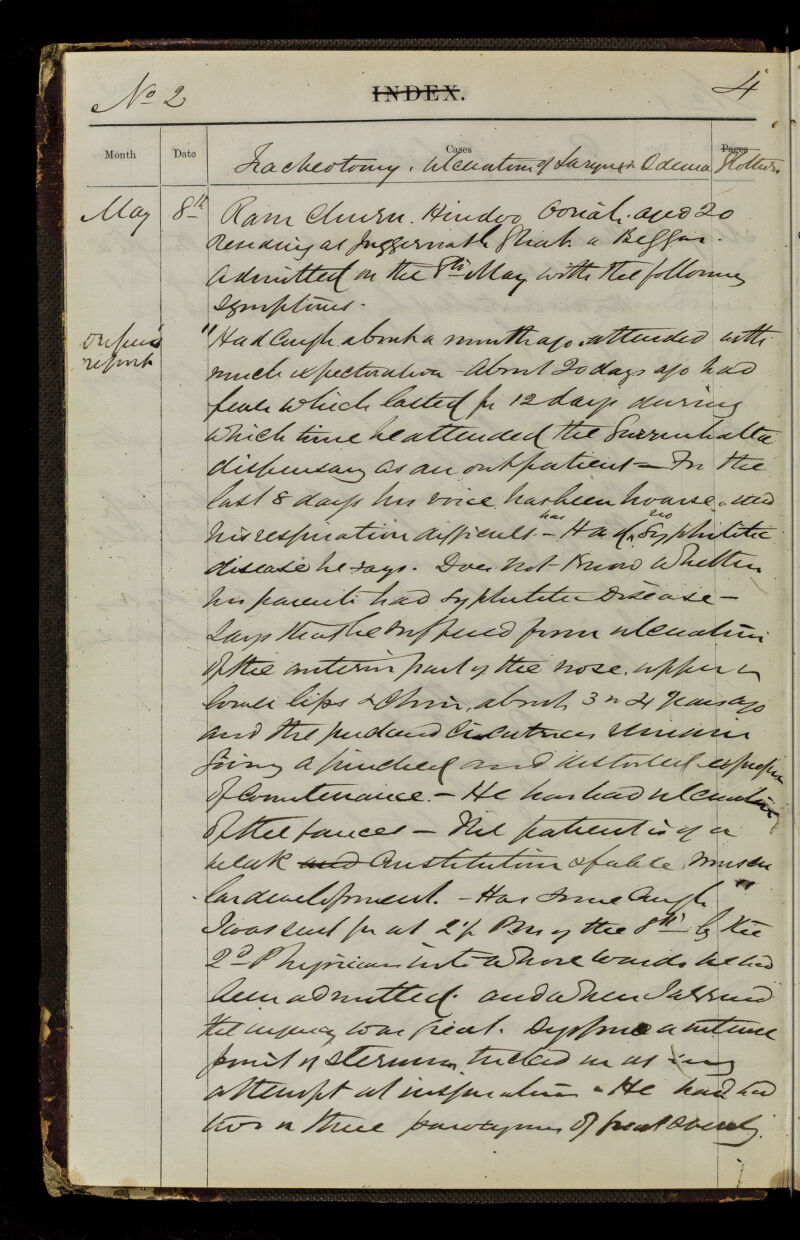 No 2 INDEX. 4
Month Date Cases Pages
Tracheotomy. Ulceration of Larynx & Odema Glottidis
May 8th Ram Churn. Hindoo aged 20
residing at Juggernath Ghat a Beggar.
Admitted on the 8th May with the following
symptoms.
"Had Cough about a month ago attended with
report much expectoration - About 20 days ago had
fever which lasted for 12 days during
which time he attended the
dispensary as an outpatient - For the
last 8 days his voice has been hoarse and
his respiration difficult - has Had no Syphilitic
disease he says. Does not Know whether
his parents had Syphilitic Disease -
Says that he suffered from ulceration
of the anterior part of the nose. upper &
lower lips & Chin, about 3 or 4 years ago
and the Cicatrices remain
giving a pinched and distorted expression
of Countenance. - He has had ulceration
of the fauces - The patient is of a
weak and Constitution & feeble muscu
lar development. - Has some Cough
I was sent for at 2½ Pm of the 8th by the
2d Physician into whose wards he had
been admitted. and when I arrived
the urgency was great. Dyspnoea intense
point of sternum tucked in at any
attempt at inspiration - He had had
two or three paroxysms of great severity.